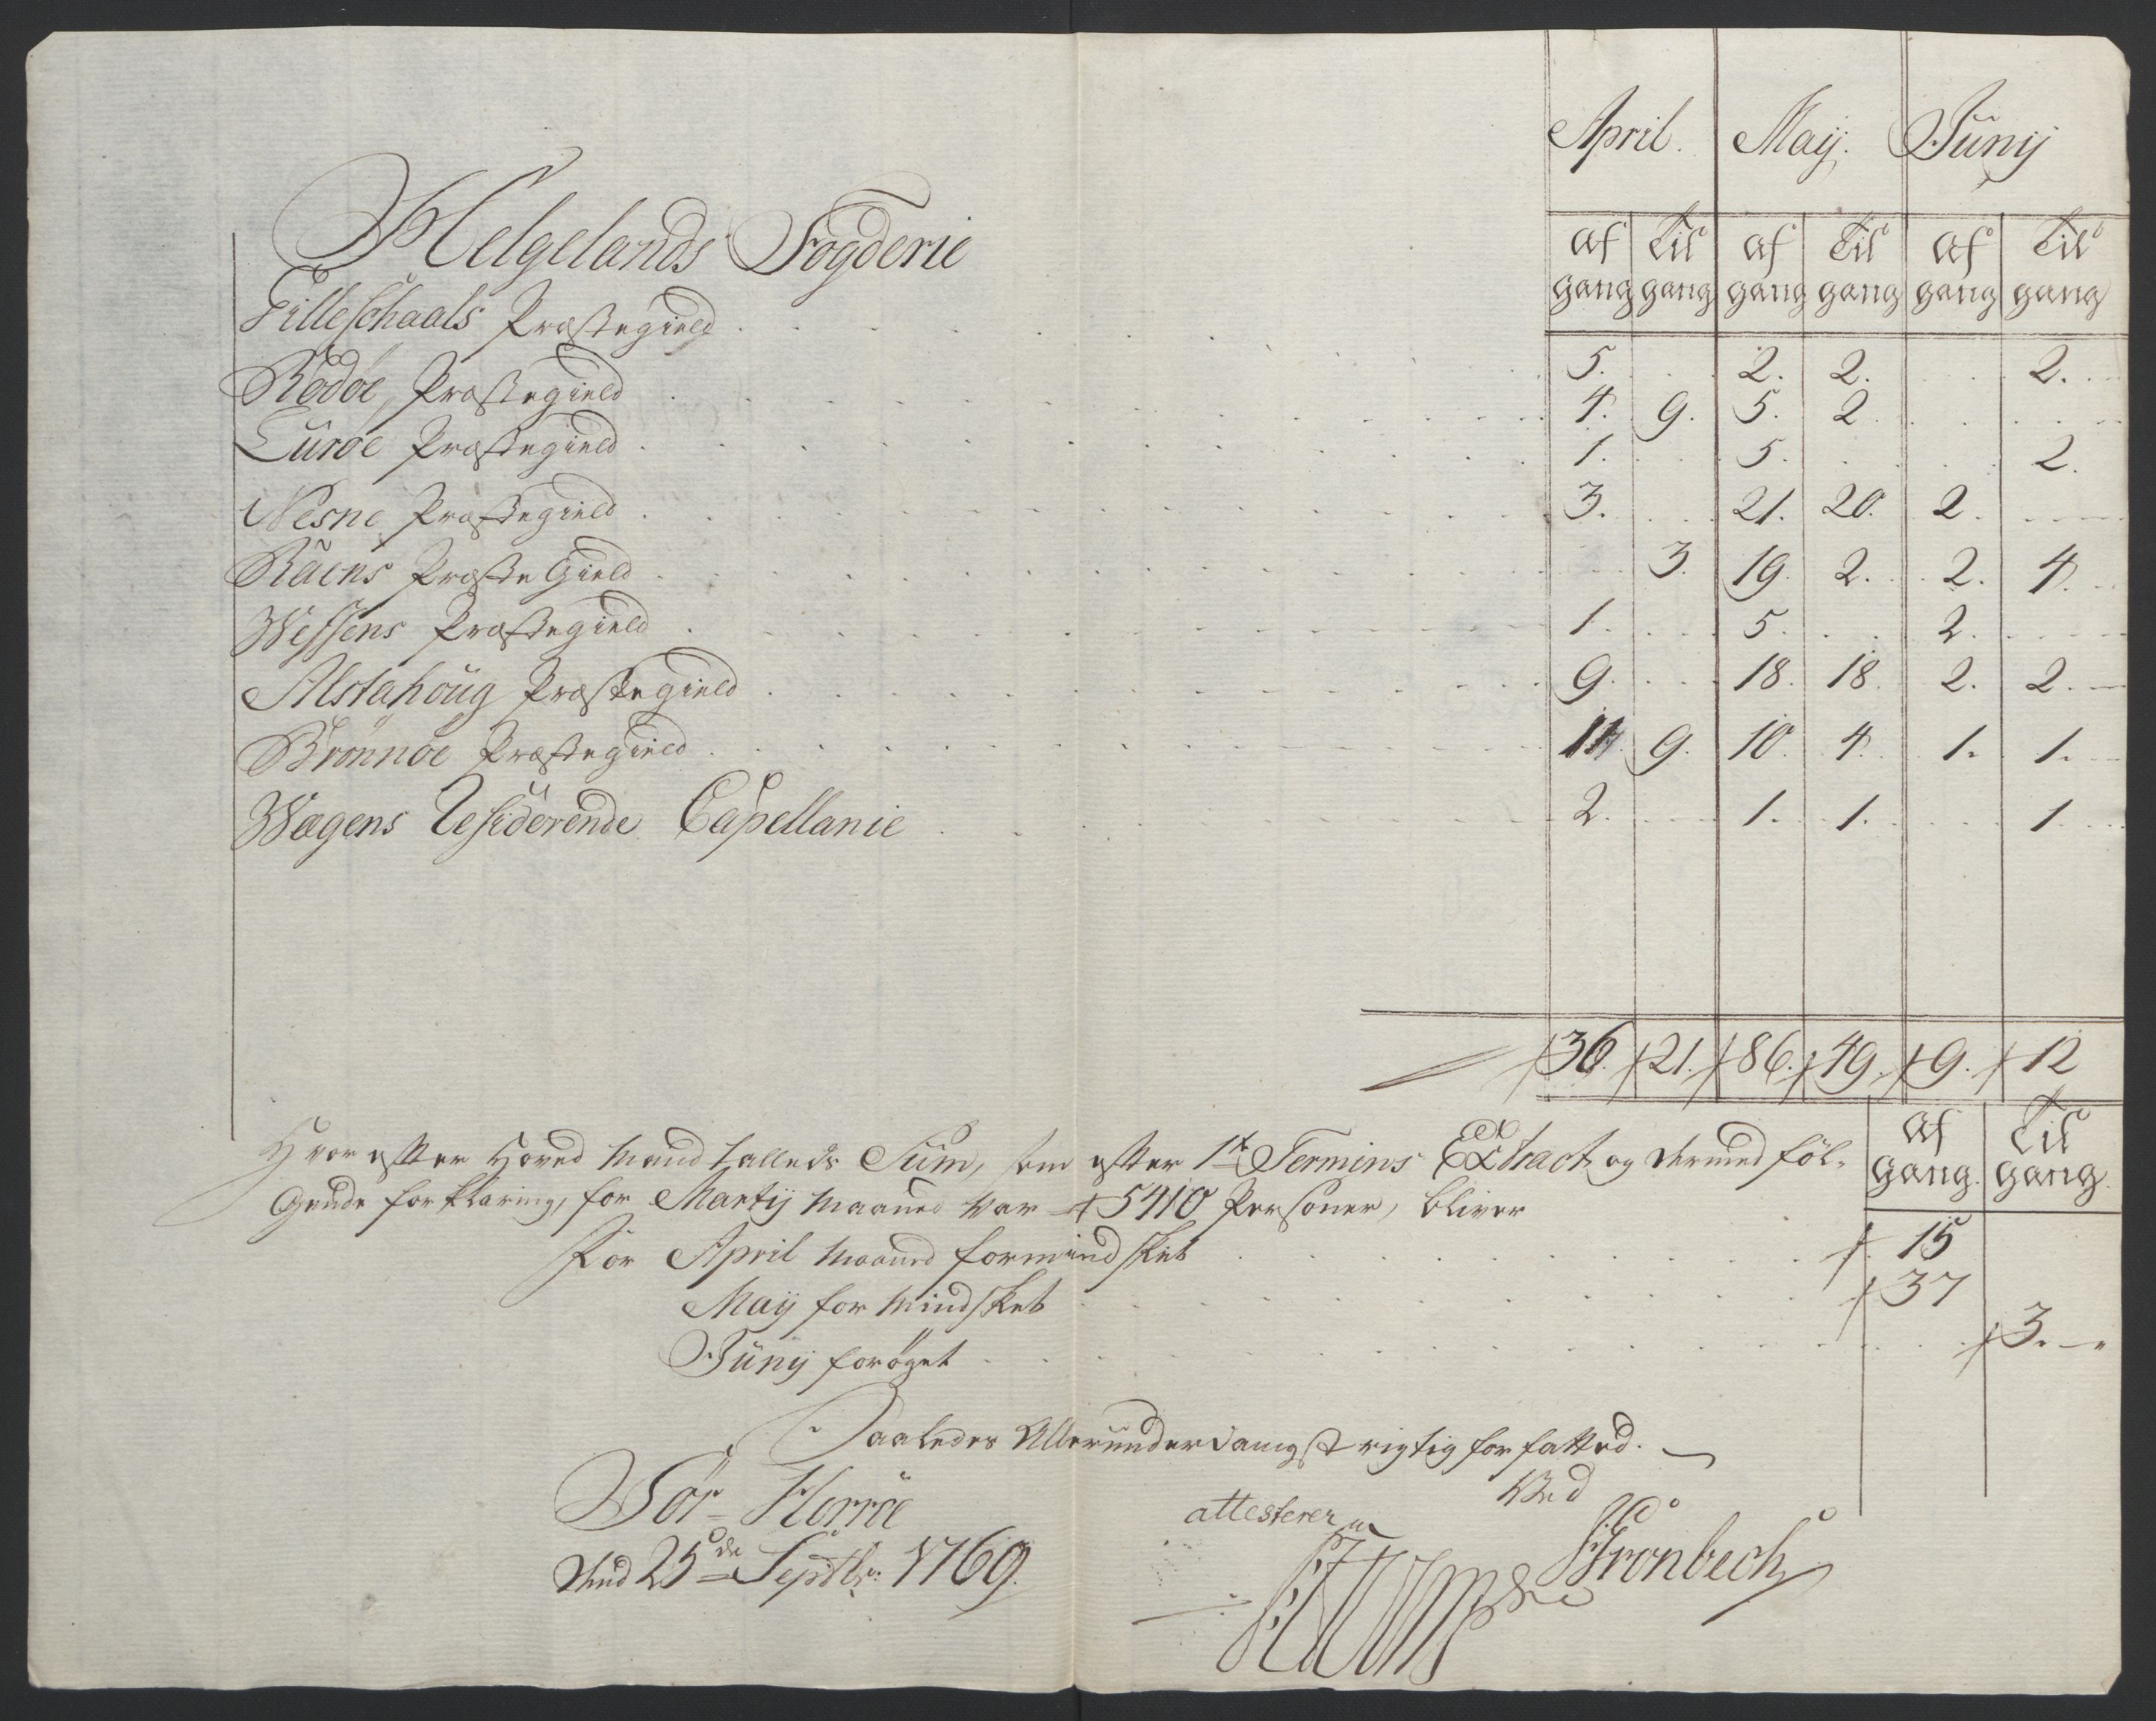 April. Maij. Junij
Helgelands Fogderie
af Til af Til af Til
gang gang gang gang gang gang
Gilleschaals Præstegield 5. 2. 2. 2.
Rödöe, Præstegield 4. 9. 5. 2
Luröe Præstegield 1. 5. 2.
Nesne Præstegield 3. 21. 20. 2.
Raens Præste Gield 3. 19. 2. 2. 4.
Wefsens Præstegield 1. 5. 2.
Alstahoug Præstegield 9. 18. 18. 2. 2.
Brönnöe Præstegield 11. 9. 10. 4. 1. 1.
Wægens Residerende Capellanie 2. 1. 1. 1.
36. 21. 86. 49. 9. 12
Af Til
gang. gang.
Hvorefter Hoved Mandtallets Sum, som efter 1te Termins Extract og dermed föl-
gende forklaring, for Martij Maaned var 5410 Personer, bliver
For April Maaned formindsket 15
Maij formindsket 37
Junij forøget 3.
Saaledes Allerunderdanigst rigtig forfatted.
Sör-Herröe
dend 25de Septbr: 1769.
Ved
attesterer
Grönbech